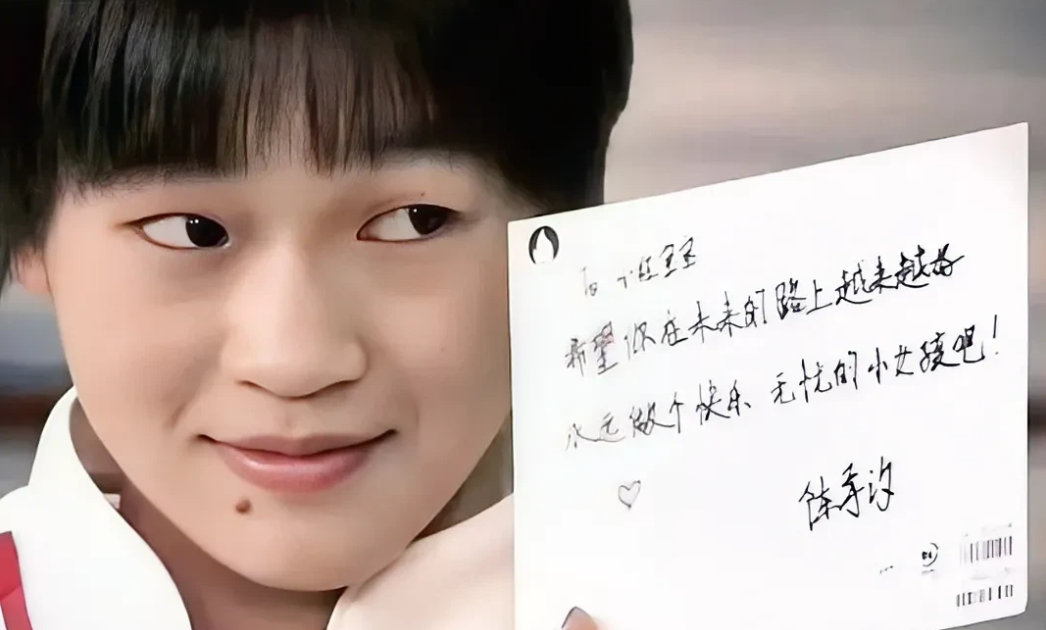 To 小红宝宝
希望你在未来的路上越来越好
永远做个快乐无忧的小女孩吧！
陈芋汐